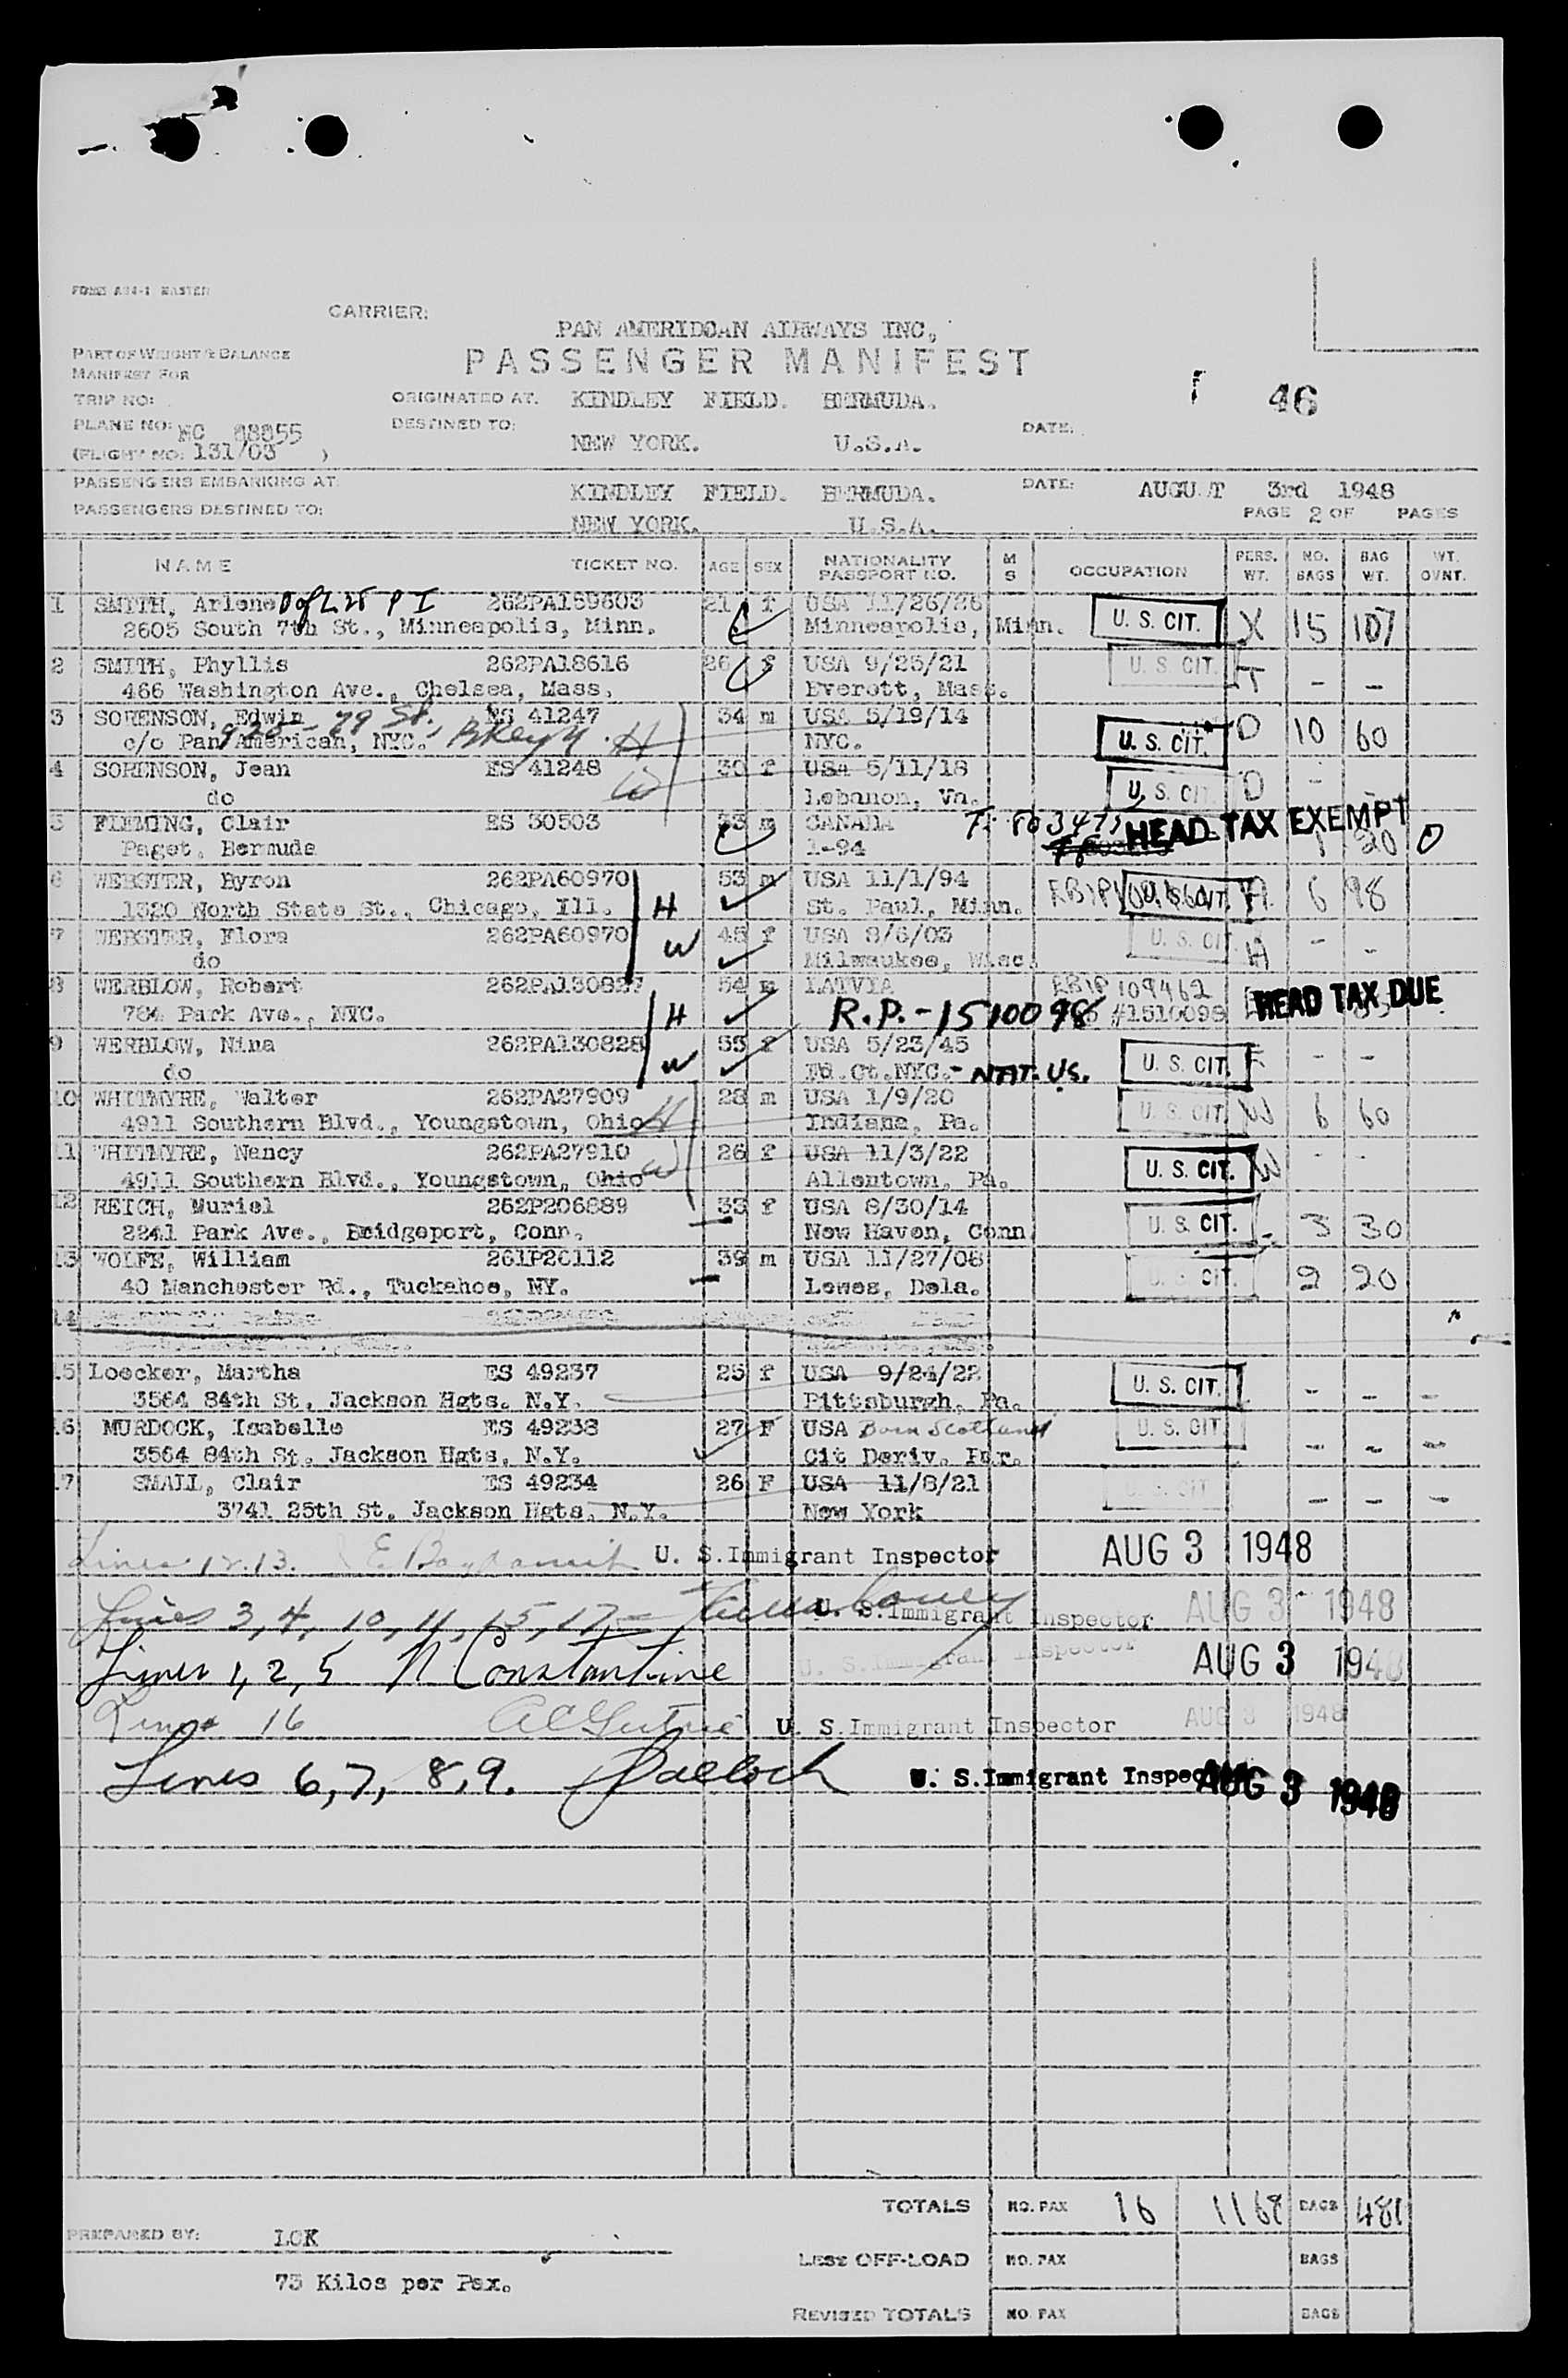 CARRIER:
PAN AMERIDCAN AIRWAYS INC,
PASSENGER MANIFEST
PART OF WEIGHT & BALANCE
MANIFEST FOR
TRIP NO:
ORIGINATED AT. KINDLEY FIELD. BERMUDA.
46
PLANE NO: NC 88855
DESTINED TO: NEW YORK. U.S.A.
DATE:
(FLIGHT NO: 131/03 )
PASSENGERS EMBARKING AT: KINDLEY FIELD. BERMUDA.
DATE: AUGU T 3rd 1948
PASSENGERS DESTINED TO: NEW YORK. U.S.A.
PAGE 2 OF PAGES
NAME TICKET NO. AGE SEX NATIONALITY PASSPORT NO. M S OCCUPATION PERS. WT. NO. BAGS BAG WT. WT. OVNT.
1 SMITH, Arlene 262PA159603 21 f USA 11/26/26 U. S. CIT. X 15 107
2605 South 7th St., Minneapolis, Minn. Minneapolis, Minn.
2 SMITH, Phyllis 262PA18616 26 f USA 9/25/21 U. S. CIT. T - -
466 Washington Ave., Chelsea, Mass. Everett, Mass.
3 SORENSON, Edwin ES 41247 34 m USA 5/19/14 U. S. CIT. D 10 60
c/o Pan American, NYC. H NYC.
4 SORENSON, Jean ES 41248 30 f USA 5/11/18 U. S. CIT. D -
do W Lebanon, Va.
5 FLEMING, Clair ES 30503 33 m CANADA HEAD TAX EXEMPT
Paget, Bermuda 1-94 1 20 0
6 WEBSTER, Byron 262PA60970 53 m USA 11/1/94 H 6 98
1320 North State St., Chicago, Ill. H St. Paul, Minn.
7 WEBSTER, Flora 262PA60970 45 f USA 8/6/03 U. S. CIT. H - -
do W Milwaukee, Wisc.
8 WERBLOW, Robert 262PA130827 54 m LATVIA EBIP 109462
784 Park Ave., NYC. H R.P.-1510098 #1510098 HEAD TAX DUE
9 WERBLOW, Nina 262PA130828 55 f USA 5/23/45 U. S. CIT. - -
do W Fd. Ct.NYC.- NAT. US.
10 WHITMYRE, Walter 262PA27909 28 m USA 1/9/20 U. S. CIT. W 6 60
4911 Southern Blvd., Youngstown, Ohio H Indiana, Pa.
11 WHITMYRE, Nancy 262PA27910 26 f USA 11/3/22 U. S. CIT. W - -
4911 Southern Blvd., Youngstown, Ohio W Allentown, Pa.
12 REICH, Muriel 262P206889 33 f USA 8/30/14 U. S. CIT. 3 30
2241 Park Ave., Bridgeport, Conn. New Haven, Conn
13 WOLFE, William 261P26112 39 m USA 11/27/08 U. S. CIT. 2 20
40 Manchester Rd., Tuckahoe, NY. Lewes, Dela.
14
15 Loecker, Martha ES 49237 25 f USA 9/24/22 U. S. CIT. - - -
3564 84th St. Jackson Hgts. N.Y. Pittsburgh, Pa.
16 MURDOCK, Isabelle ES 49238 27 F USA Born Scotland U. S. CIT. - - -
3564 84th St. Jackson Hgts, N.Y. Cit Deriv. Par.
17 SMALL, Clair ES 49234 26 F USA 11/8/21 U. S. CIT - - -
3741 25th St. Jackson Hgts. N.Y. New York
Lines 12.13. U. S.Immigrant Inspector AUG 3 1948
Lines 3, 4, 10, 11, 15, 17 U. S.Immigrant Inspector AUG 3 1948
Lines 1, 2, 5 N Constantine U. S.Immigrant Inspector AUG 3 1948
Lines 16 U. S.Immigrant Inspector AUG 3 1948
Lines 6, 7, 8, 9. U. S.Immigrant Inspector AUG 3 1948
TOTALS NO. PAX 16 1168 BAGS 481
PREPARED BY: LCK
LESS OFF-LOAD NO. PAX BAGS
73 Kilos per Pax.
REVISED TOTALS NO. PAX BAGS